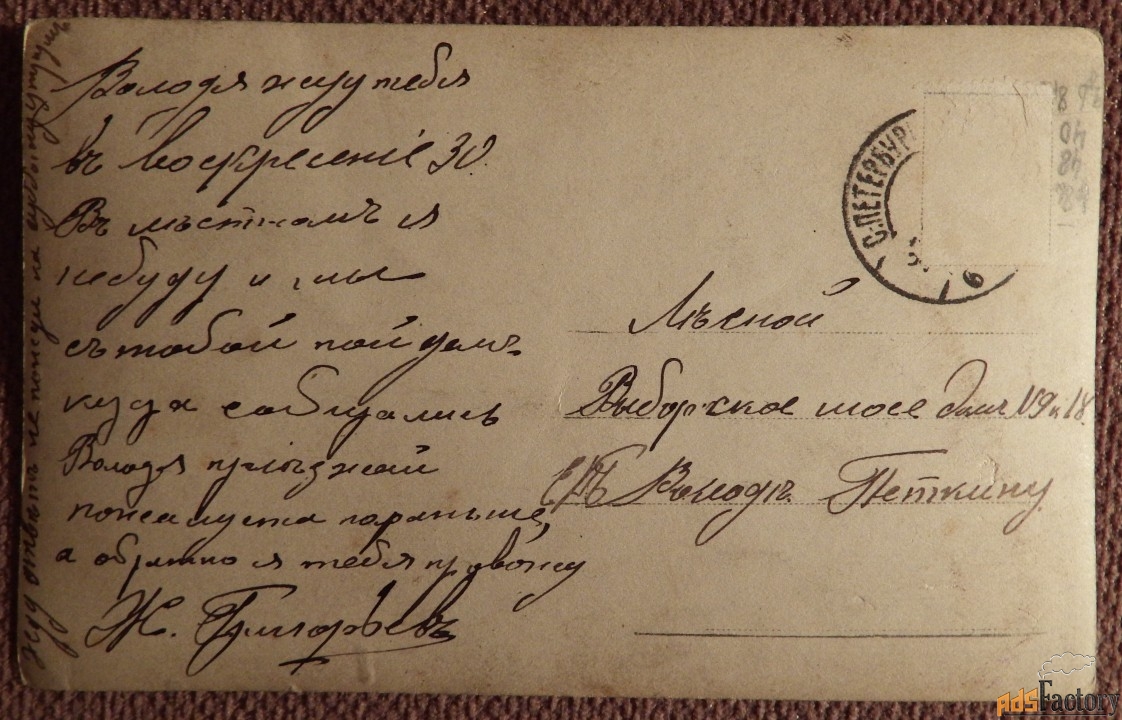 Володя жду тебя
въ воскресение 30.
Въ местномъ я
небуду и мы
съ тобой пойдемъ
куда собирались
Володя приезжай
пожалуста пораньше,
а обратно я тебя провожу
Ж. Григорьевъ
жду ответъ не
С.ПЕТЕРБУР
6
Лесной
Выборгское шосе домъ №9 к 18
Володе Петкину
AdsFactory